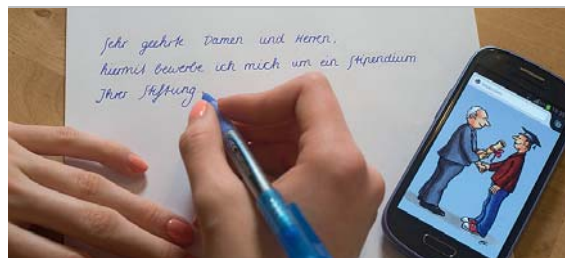 Sehr geehrte Damen und Herren,
hiermit bewerbe ich mich um ein Stipendium
Ihrer Stiftung